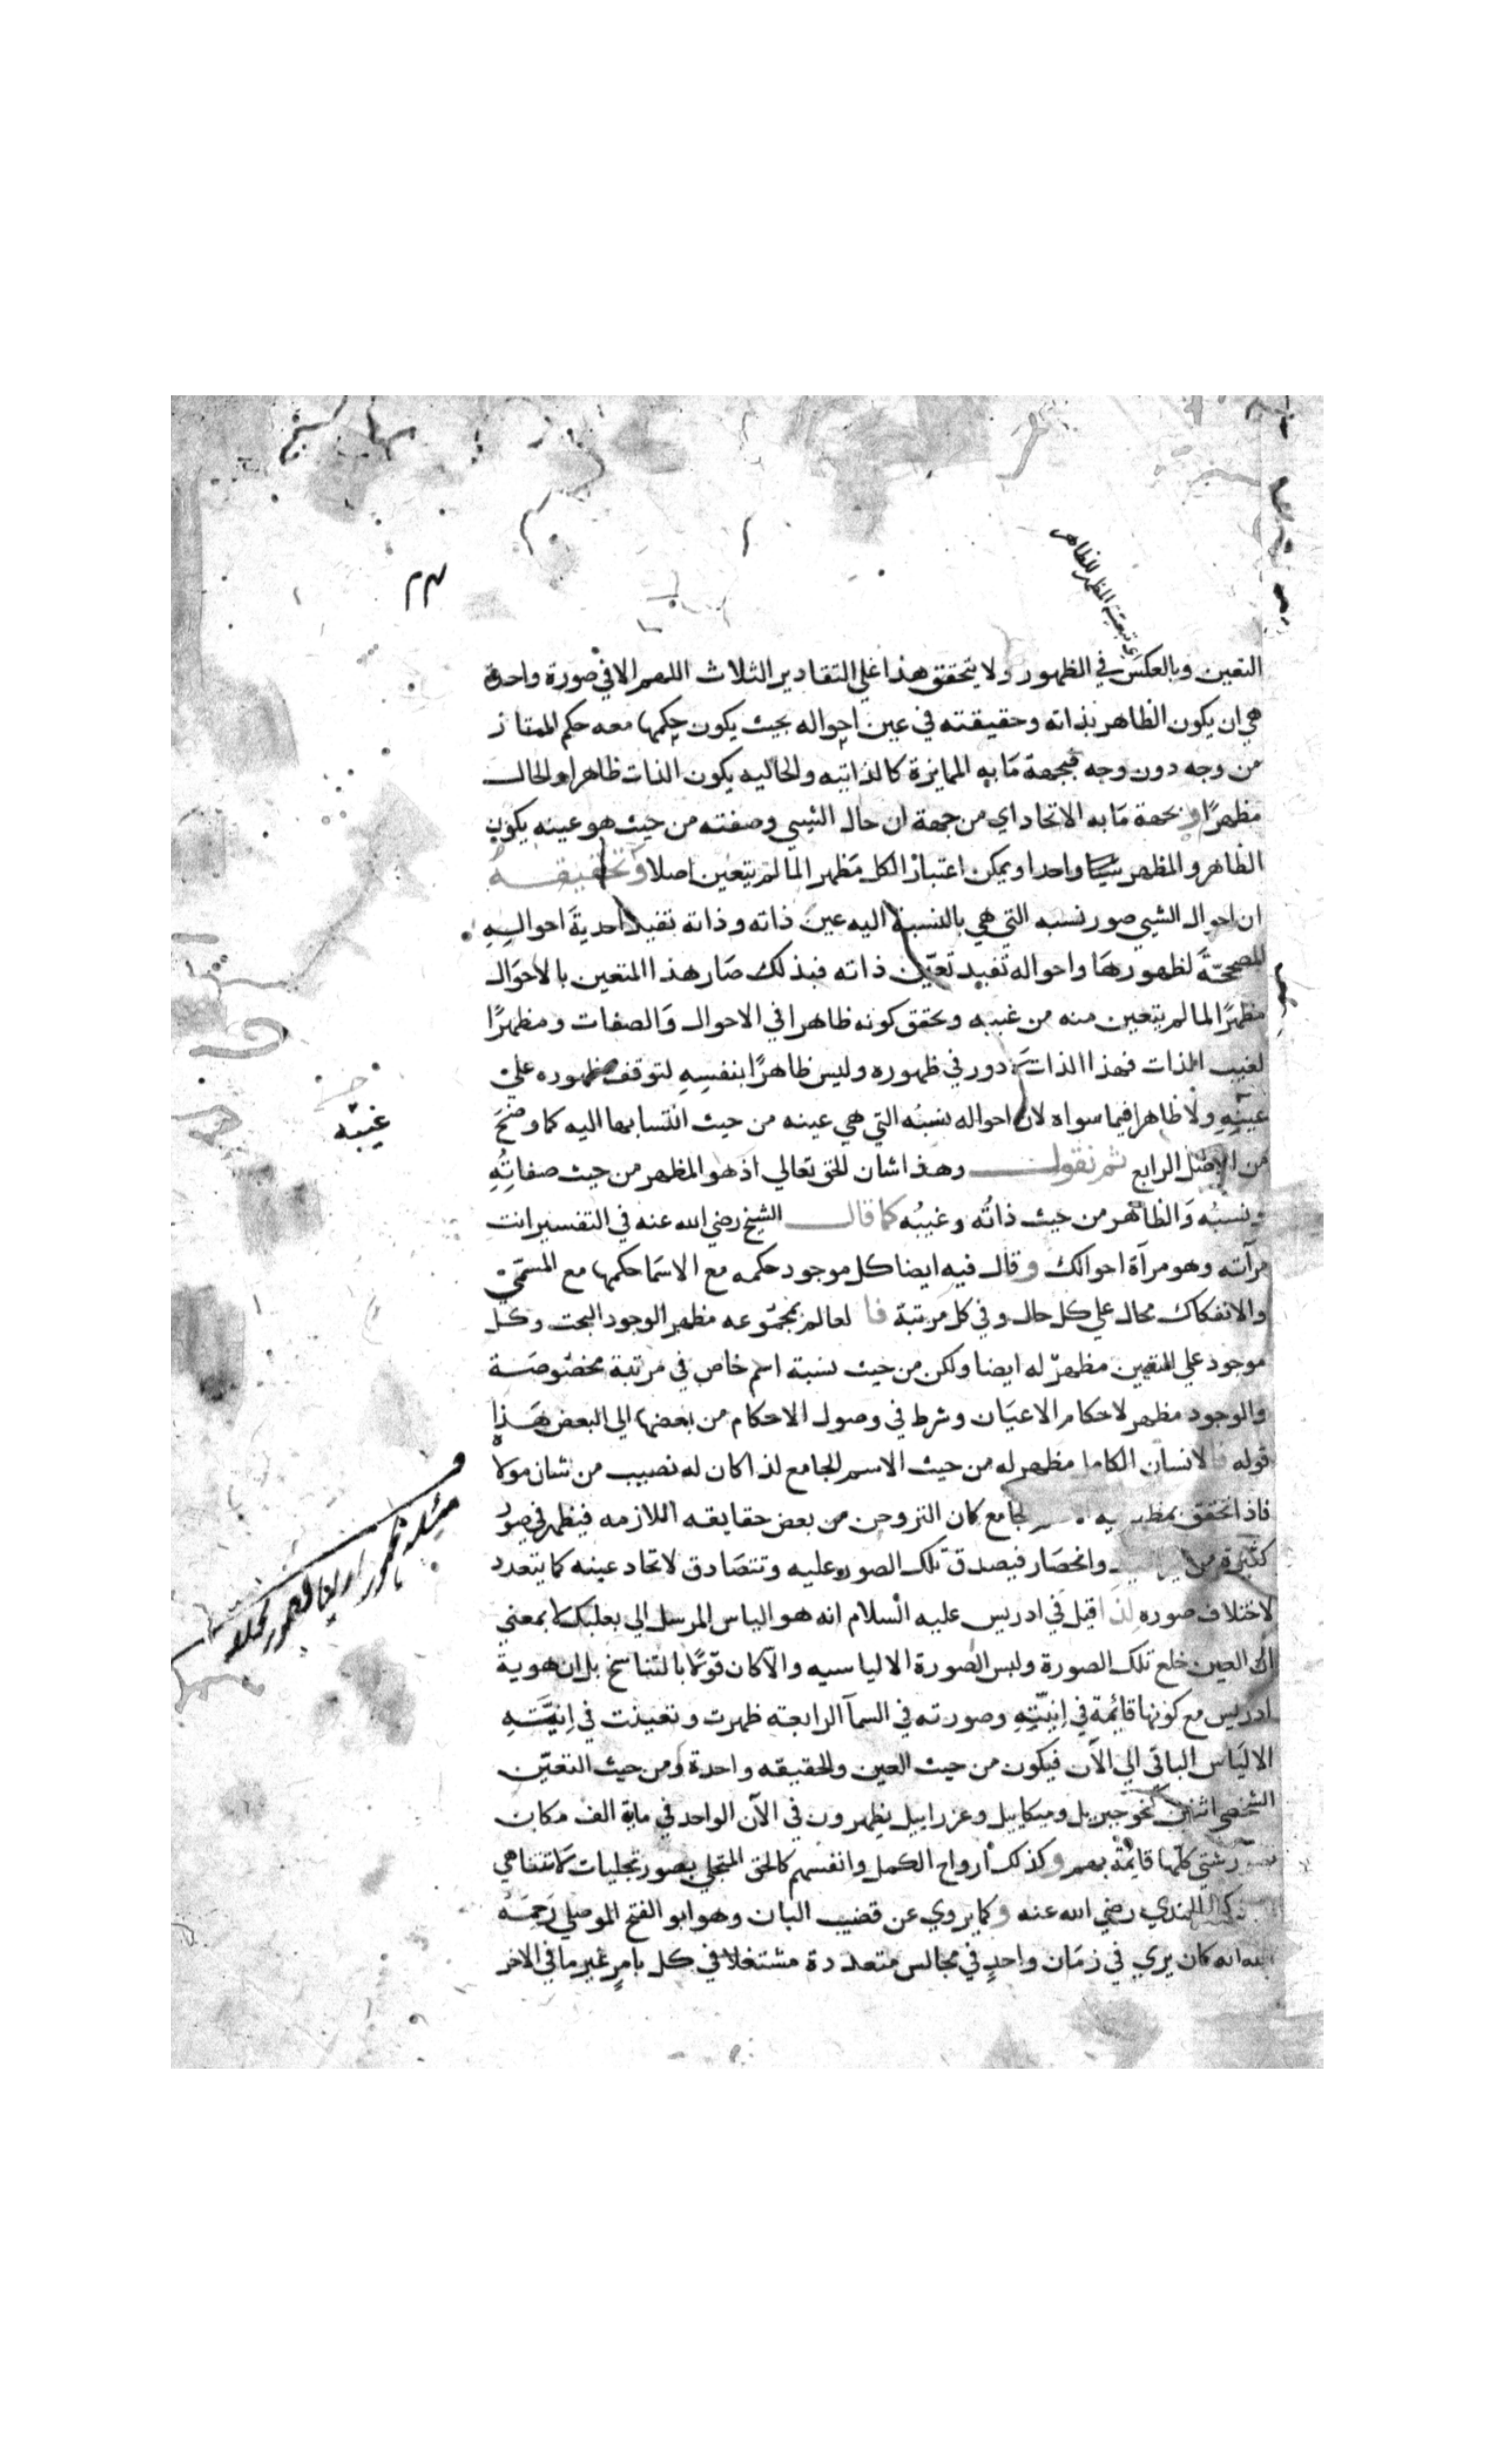 اي تبعية المظهر للظاهر
التعين وبالعكس في الظهور ولا يتحقق هذا علي التقادير الثلاث اللهم الا في صورة واحدة
هي ان يكون الظاهر بذاته وحقيقته في عين احواله بحيث يكون حكمها معه حكم الممتاز
من وجه دون وجه فبجهة مابه الممايزة كالذاتيه والحاليه يكون الذات ظاهرا والحال
مظهرًا وبجهة مابه الاتحاد اي من جهة ان حال الشيي وصفته من حيث هو عينه يكون
الظاهر والمظهر شيئا واحدا ويمكن اعتبار الكل مظهر المالم يتعين اصلا وتحقيقه
ان احوال الشيي صور نسبه التي هي بالنسبة اليه عين ذاته وذاته تفيد احدية احواله
المصححة لظهورها واحواله تفيد تعين ذاته فبذلك صار هذا المتعين بالاحوال
مظهرًا لما لم يتعين منه من غيبه وتحقق كونه ظاهرا في الاحوال والصفات ومظهرًا
لغيب الذات فهذا الذات دور في ظهوره وليس ظاهرًا بنفسه لتوقف ظهوره علي
غيبه
عينه ولا ظاهرا فيما سواه لان احواله نسبُه التي هي عينه من حيث انتسابها اليه كما وضح
من الاصل الرابع ثم نقول وهذا شان الحق تعالي اذ هو المظهر من حيث صفاته
ونسبُه والظاهر من حيث ذاتُه وغيبُه كما قال الشيخ رضي الله عنه في التفسير انت
مرآته وهو مرآة احوالك وقال فيه ايضا كل موجود حكمه مع الاسما حكمها مع المسمي
والانفكاك محال علي كل حال وفي كل مرتبة فا لعالم بمجموعه مظهر الوجود البحت وكل
موجود علي التعين مظهرٌ له ايضا ولكن من حيث نسبة اسم خاص في مرتبة مخصوصة
والوجود مظهر لاحكام الاعيان وشرط في وصول الاحكام من بعضها الي البعض هذا
قوله فالانسان الكامل مظهر له من حيث الاسم الجامع لذا كان له نصيب من شان مولاه
فاذا تحقق الجامع كان التروحن من بعض حقايقه اللازمه فيظهر في صور
كثيرة من وانحصار فيصدق تلك الصور عليه وتتصادق لاتحاد عينه كما يتعدد
لاختلاف صوره لذا قيل في ادريس عليه السلام انه هو الياس المرسل الي بعلبك لا بمعني
ان العين خلع تلك الصورة ولبس الصورة الالياسيه والا كان قولًا بالتناسخ بل ان هوية
ادريس مع كونها قائمة في إنيّتِه وصورته في السمآ الرابعه ظهرت وتعينت في إنيّته
الالياس الباقي الي الآن فيكون من حيث العين والحقيقه واحدة ومن حيث التعيّن
الشخصي اثنين كنحو جبريل وميكاييل وعزراييل يظهرون في الآن الواحد في ماية الف مكان
شتي كلها قايمة بهم وكذلك أرواح الكمل وانفسهم كالحق المتجلي بصور تجليات لا تتناهي
الجندي رضي الله عنه وكما يروي عن قضيب البان وهو ابو الفتح الموصلي رحمه
الله انه كان يري في زمان واحدٍ في مجالس متعددة مشتغلا في كل بامرٍ غير ما في الاخر